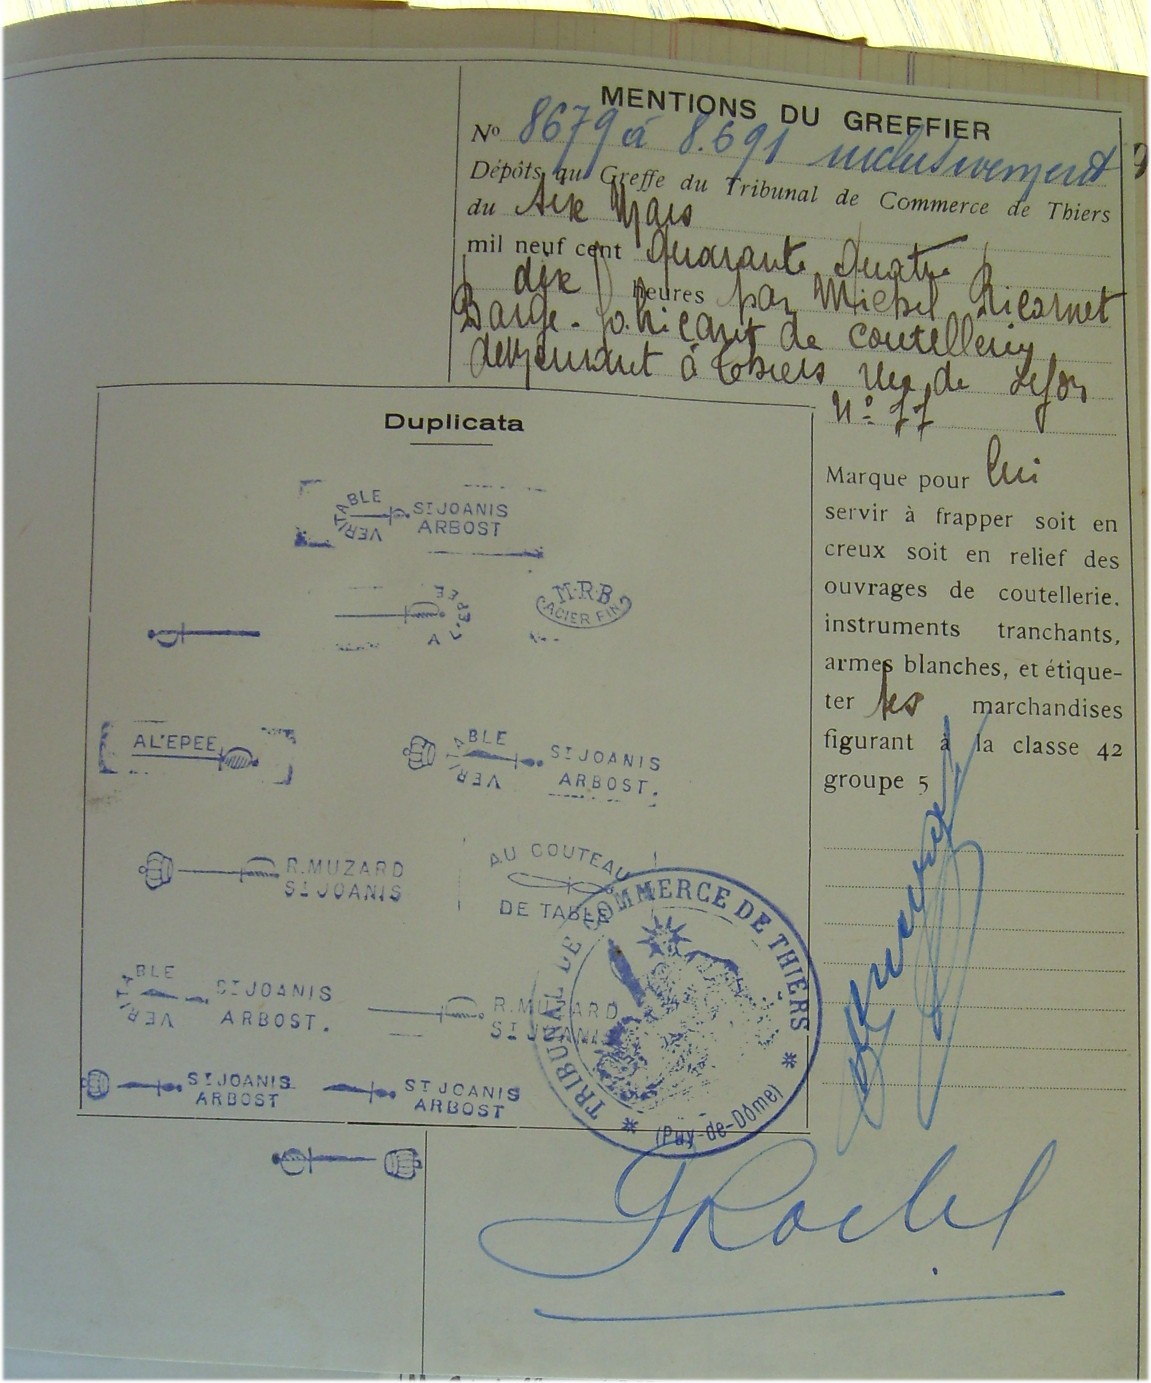 MENTIONS DU GREFFIER
Nº 8679 à 8.691 inclusivement
Dépôts au Greffe du Tribunal de Commerce de Thiers
du six Mars
mil neuf cent quarante quatre
dix heures par Michel
Barge. fabricant de coutellerie
demeurant à Thiers rue de Lyon
Nº 77
Duplicata
Marque pour lui
servir à frapper soit en
creux soit en relief des
ouvrages de coutellerie,
instruments tranchants,
armes blanches, et étique-
ter ses marchandises
figurant à la classe 42
groupe 5
VERITABLE ST JOANIS
ARBOST
A L'EPEE
M.R.B
ACIER FIN
A L'EPEE
VERITABLE ST JOANIS
ARBOST.
R.MUZARD
ST JOANIS
AU COUTEAU
DE TABLE
VERITABLE ST JOANIS
ARBOST.
R.MUZARD
ST JOANIS
ST JOANIS
ARBOST
ST JOANIS
ARBOST
TRIBUNAL DE COMMERCE DE THIERS
(Puy-de-Dôme)